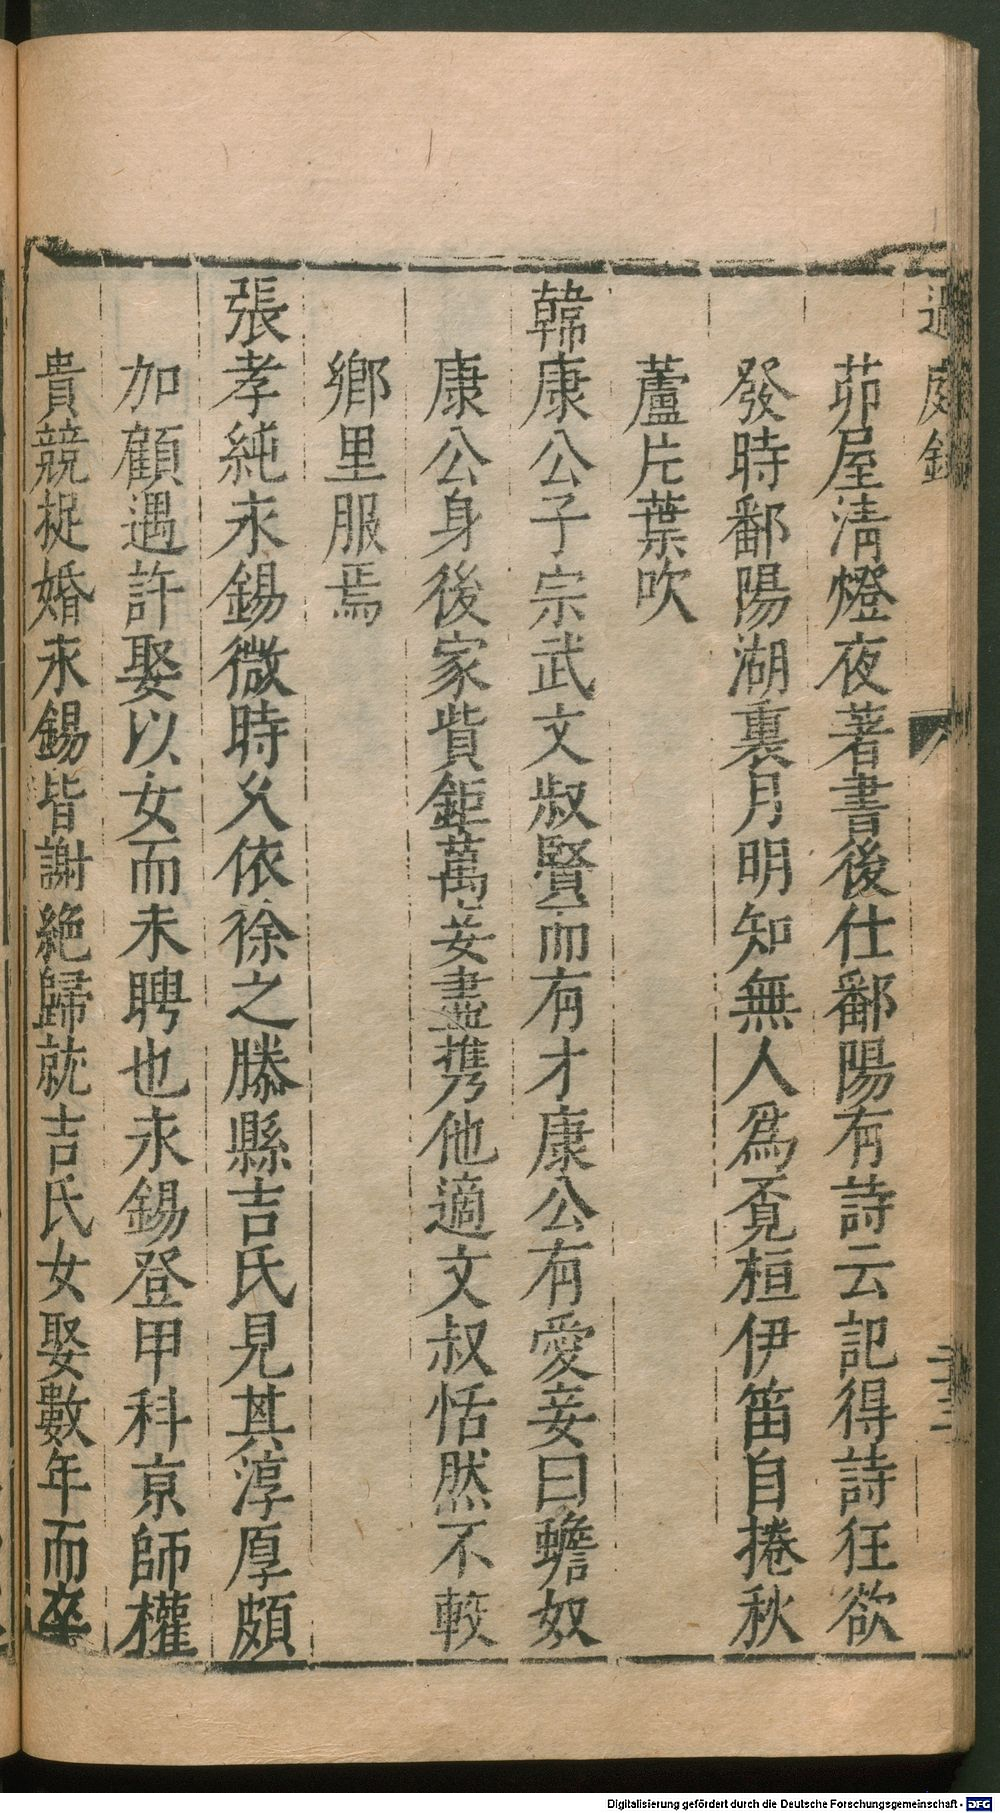 過庭錄 二十三
茆屋清燈夜著書後仕鄱陽有詩云記得詩狂欲
發時鄱陽湖裏月明知無人爲覔桓伊笛自捲秋
蘆片葉吹
韓康公子宗武文叔賢而有才康公有愛妾曰蟾奴
康公身後家貲鉅萬妾盡携他適文叔恬然不較
鄉里服焉
張孝純永錫微時久依徐之滕縣吉氏見其淳厚頗
加顧遇許娶以女而未聘也永錫登甲科京師權
貴競捉婚永錫皆謝絶歸就吉氏女娶數年而卒
Digitalisierung gefördert durch die Deutsche Forschungsgemeinschaft - DFG